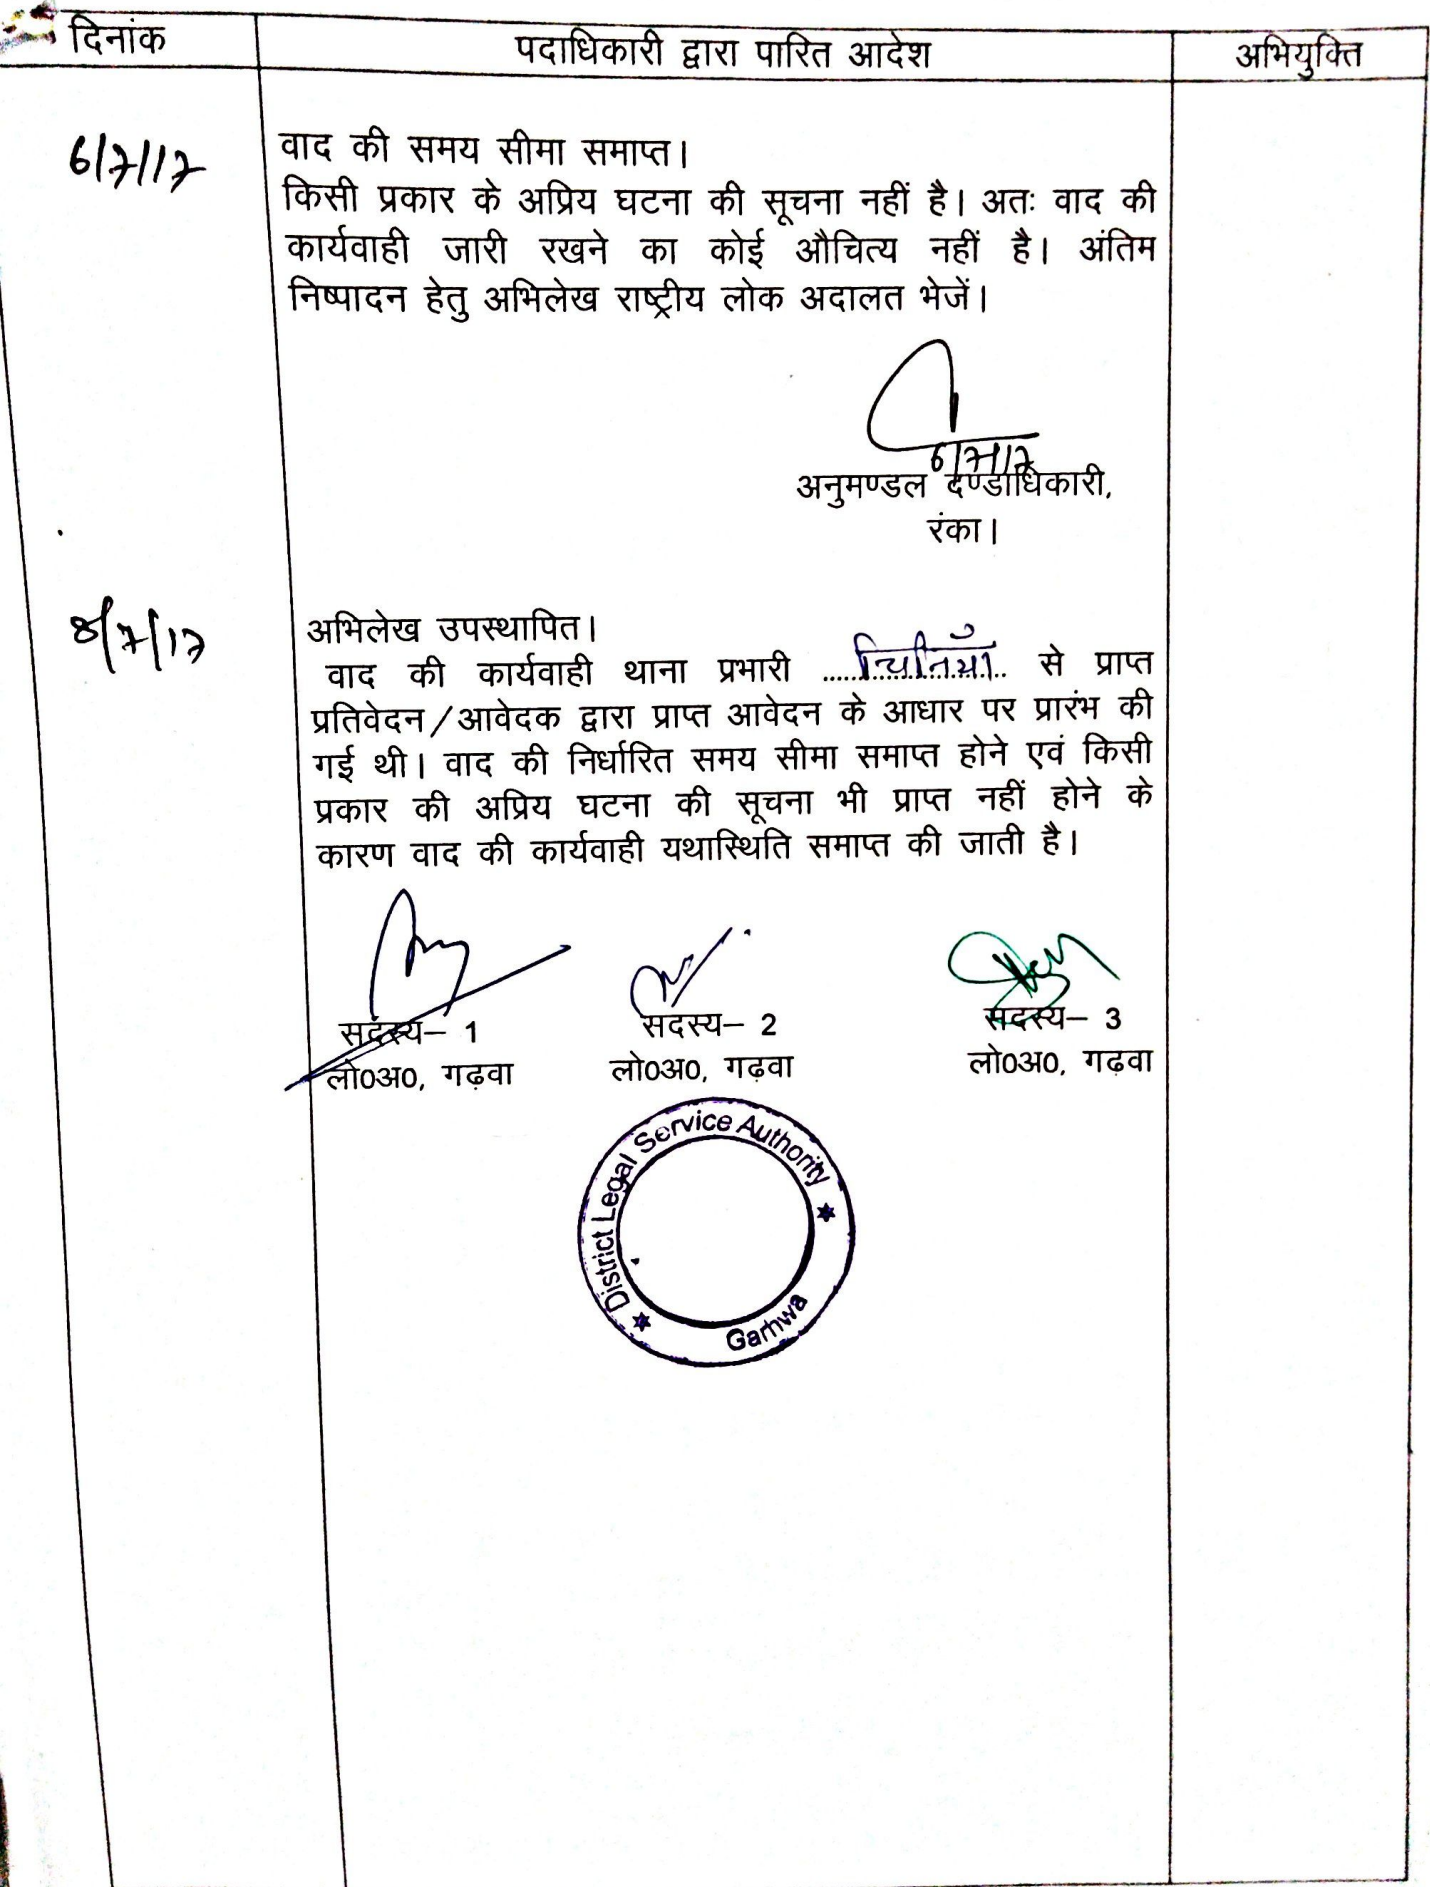 दिनांक पदाधिकारी द्वारा पारित आदेश अभियुक्ति
6/7/17 वाद की समय सीमा समाप्त।
किसी प्रकार के अप्रिय घटना की सूचना नहीं है। अतः वाद की
कार्यवाही जारी रखने का कोई औचित्य नहीं है। अंतिम
निष्पादन हेतु अभिलेख राष्ट्रीय लोक अदालत भेजें।
6/7/17
अनुमण्डल दण्डाधिकारी,
रंका।
8/7/17 अभिलेख उपस्थापित।
वाद की कार्यवाही थाना प्रभारी चिनियाँ से प्राप्त
प्रतिवेदन/आवेदक द्वारा प्राप्त आवेदन के आधार पर प्रारंभ की
गई थी। वाद की निर्धारित समय सीमा समाप्त होने एवं किसी
प्रकार की अप्रिय घटना की सूचना भी प्राप्त नहीं होने के
कारण वाद की कार्यवाही यथास्थिति समाप्त की जाती है।
सदस्य– 1 सदस्य– 2 सदस्य– 3
लो0अ0, गढ़वा लो0अ0, गढ़वा लो0अ0, गढ़वा
District Legal Service Authority
Garhwa